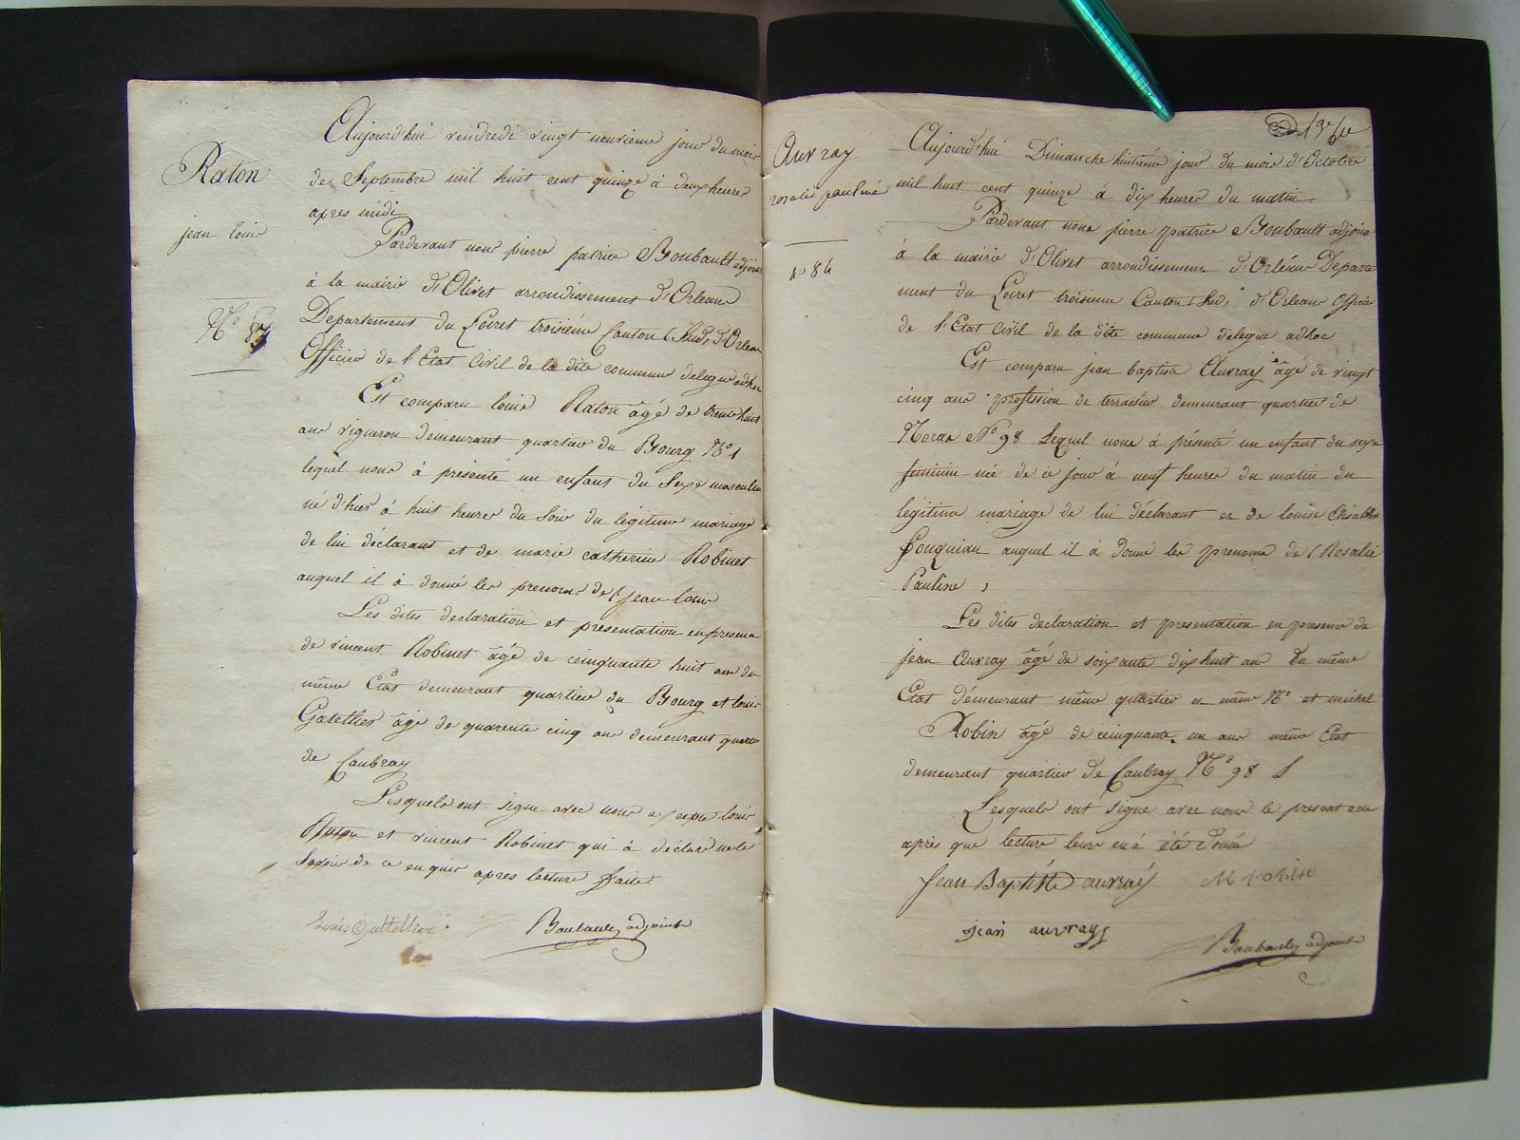 Raton
jean louis
N° 83
Aujourd'hui vendredi vingt neuvieme jour du mois
de Septembre mil huit cent quinze à deux heures
apres midi
Pardevant nous pierre patrice Boubault adjoint
à la mairie d'Olivet arrondissement d'Orleans
Departement du Loiret troisieme Canton (Sud) d'Orleans
Officier de l'Etat Civil de la dite commune delegué adhoc
Est comparu louis Raton âgé de trente huit
ans vigneron demeurant quartier du Bourg N° 1
lequel nous à présenté un enfant du Sexe masculin
né d'hier à huit heures du Soir du legitime mariage
de lui déclarant et de marie catherine Robinet
auquel il à donné les prenoms de (jean louis
Les dites declaration et presentation en presence
de vincent Robinet âgé de cinquante huit ans du
même Etat demeurant quartier du Bourg et louis
Gatellier âgé de quarente cinq ans demeurant quartier
de Caubray
Lesquels ont signé avec nous excepté louis
Raton et vincent Robinet qui à declaré ne le
Savoir de ce enquis apres lecture faite
Louis Gattellier
Boubault adjoint
Auvray
rosalie pauline
n° 84
137
Aujourd'hui Dimanche huitieme jour du mois d'Octobre
mil huit cent quinze à dix heures du matin
Pardevant nous pierre patrice Boubault adjoint
à la mairie d'Olivet arrondissement d'Orléans Departe
ment du Loiret troisieme Canton (Sud) d'Orleans Officier
de l'Etat Civil de la dite commune delegué adhoc
Est comparu jean baptiste Auvray âgé de vingt
cinq ans profession de terrassier demeurant quartier de
N° 98 Lequel nous à présenté un enfant du sexe
feminin née de ce jour à neuf heures du matin du
legitime mariage de lui déclarant et de louise Elisabeth
Fouquiau auquel il à donné les prenoms de (Rosalie
Pauline )
Les dites declaration et presentation en presence de
jean Auvray âgé de soixante dix huit ans du même
Etat demeurant même quartier et même N° et michel
Robin âgé de cinquante un ans même Etat
demeurant quartier de Caubray N° 98
Lesquels ont signé avec nous le present acte
après que lecture leur en à été donné
Jean Baptiste auvray
jean auvray
Boubault adjoint